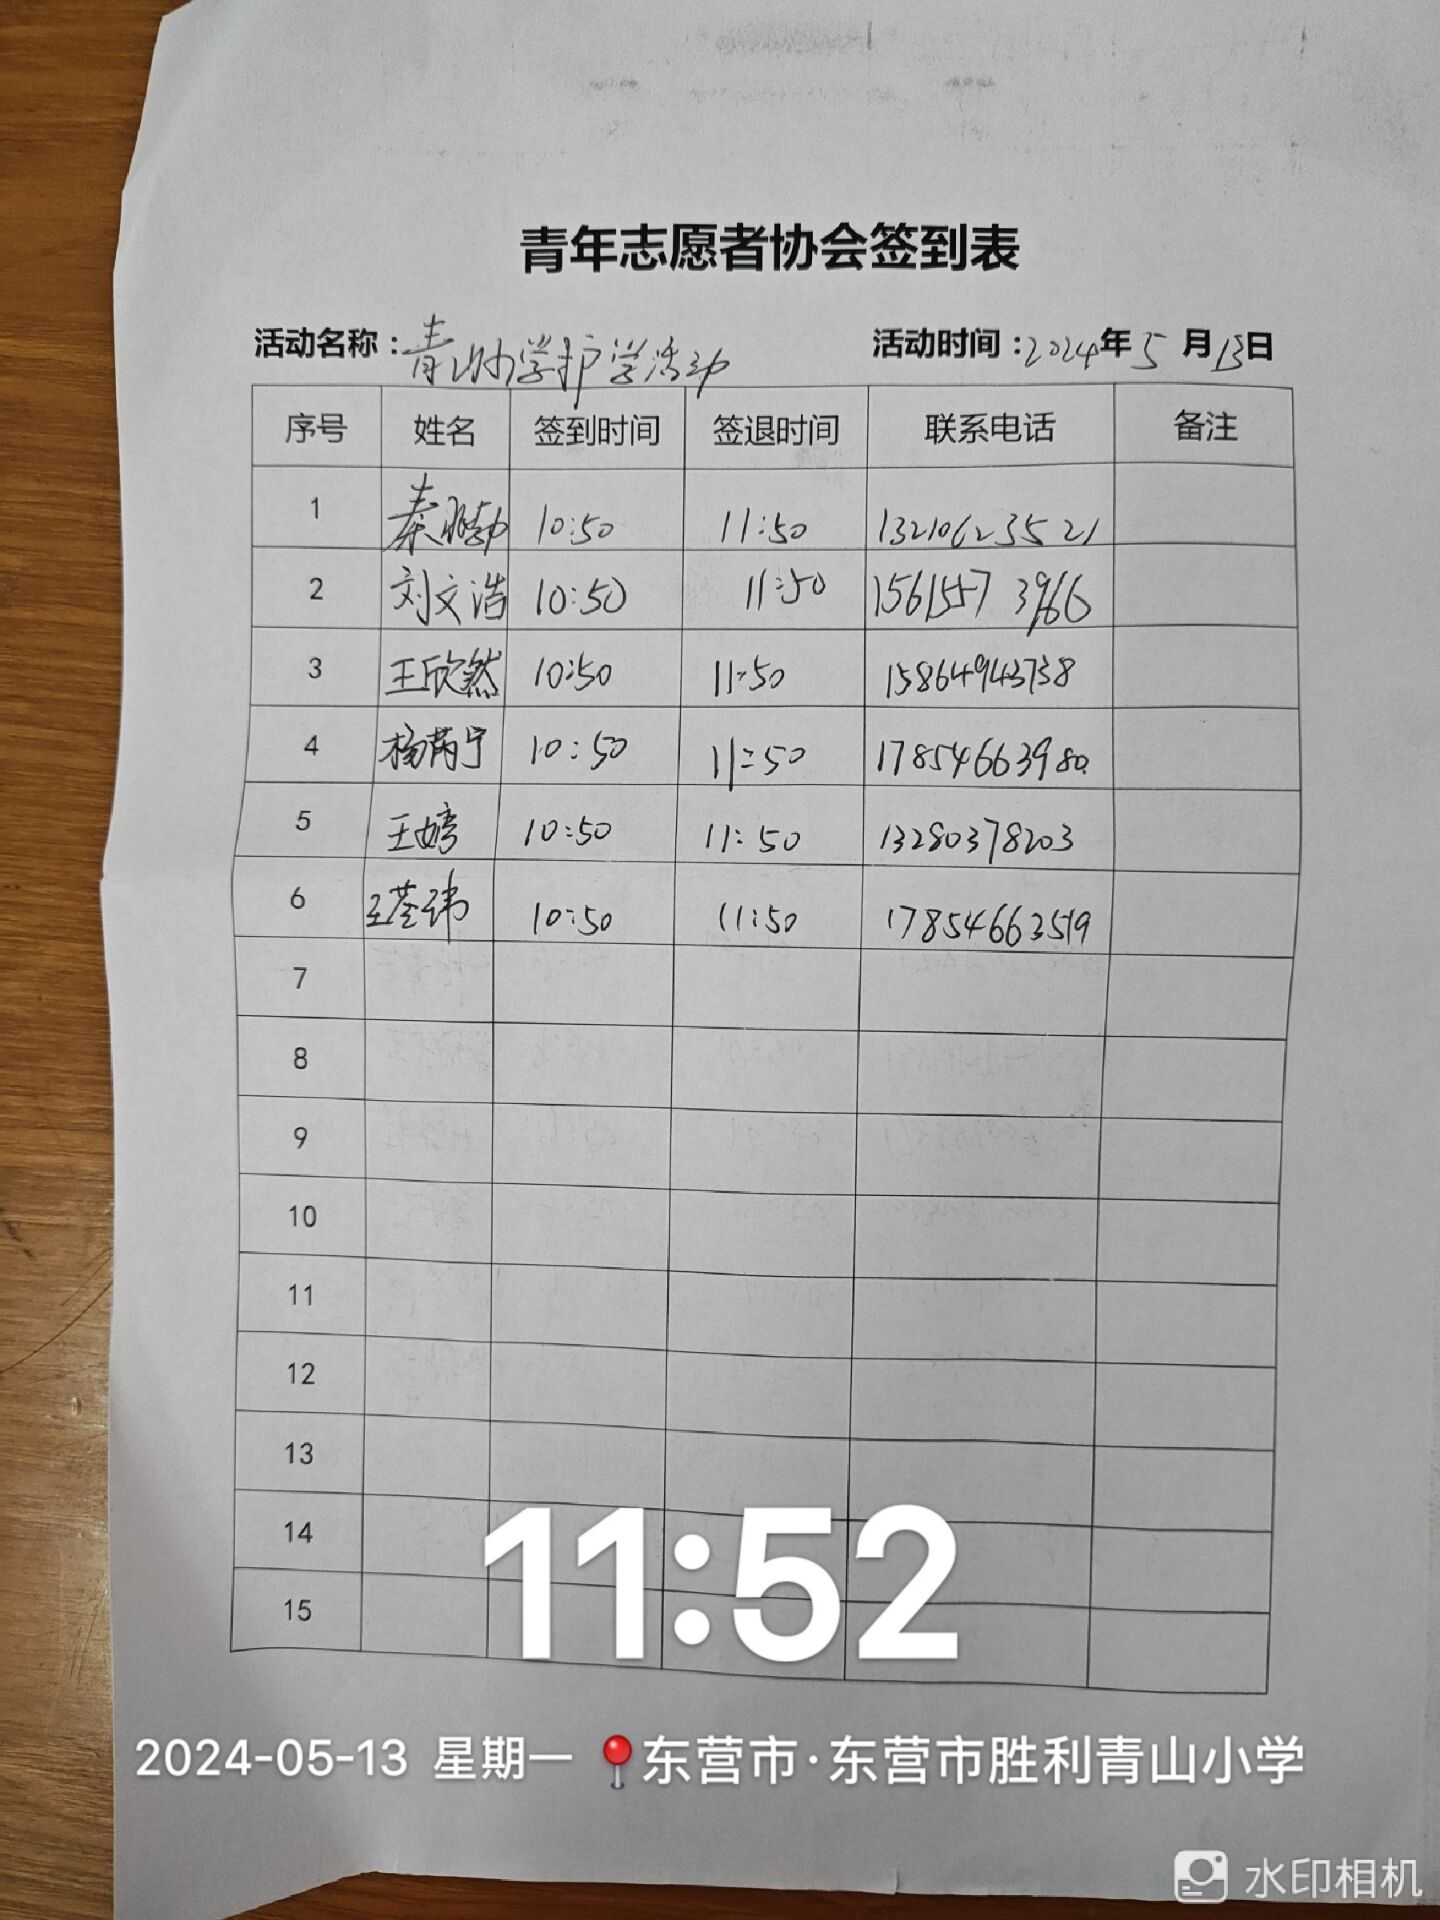 青年志愿者协会签到表
活动名称：青山小学护学活动 活动时间：2024年5月13日
序号 姓名 签到时间 签退时间 联系电话 备注
1 秦鹏勃 10:50 11:50 13210623521
2 刘文浩 10:50 11:50 15615573966
3 王欣然 10:50 11:50 15864943738
4 杨芮宁 10:50 11:50 17854663980
5 王婷 10:50 11:50 13280378203
6 王荟玮 10:50 11:50 17854663519
7
8
9
10
11
12
13
14
15
11:52
2024-05-13 星期一 东营市·东营市胜利青山小学
水印相机